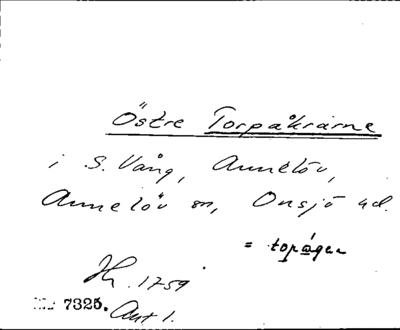 Östre Torpåkrarne
i S. Vång, Annelöv,
Annelöv sn, Onsjö hd.
= topágan
Jh. 1759
7325. Akt 1.